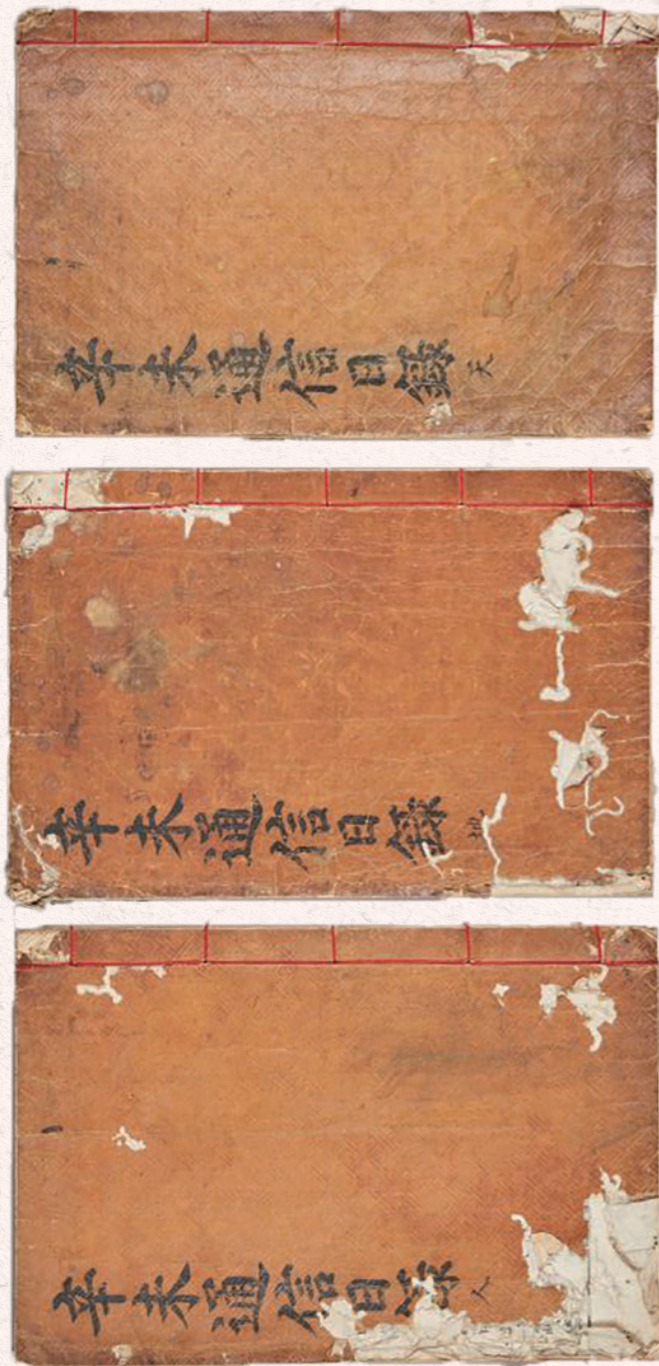 辛未通信日錄 天
辛未通信日錄 地
辛未通信日錄 人